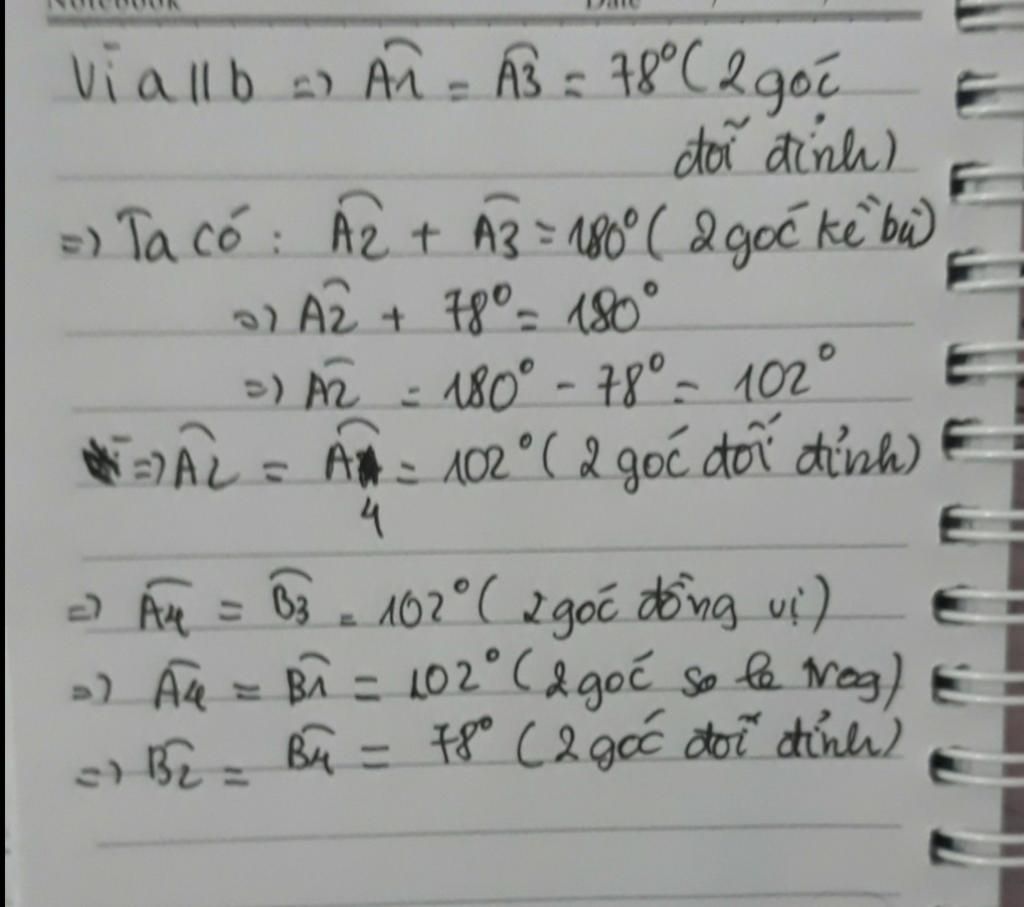 Notebook Date
Vì a || b => Â1 = Â3 = 78° ( 2 góc
đối đỉnh)
=> Ta có : Â2 + Â3 = 180° ( 2 góc kề bù)
=> Â2 + 78° = 180°
=> Â2 = 180° - 78° = 102°
=> Â2 = Â4 = 102° ( 2 góc đối đỉnh)
=> Â4 = B̂3 = 102° ( 2 góc đồng vị)
=> Â4 = B̂1 = 102° ( 2 góc so le trog)
=> B̂2 = B̂4 = 78° ( 2 góc đối đỉnh)